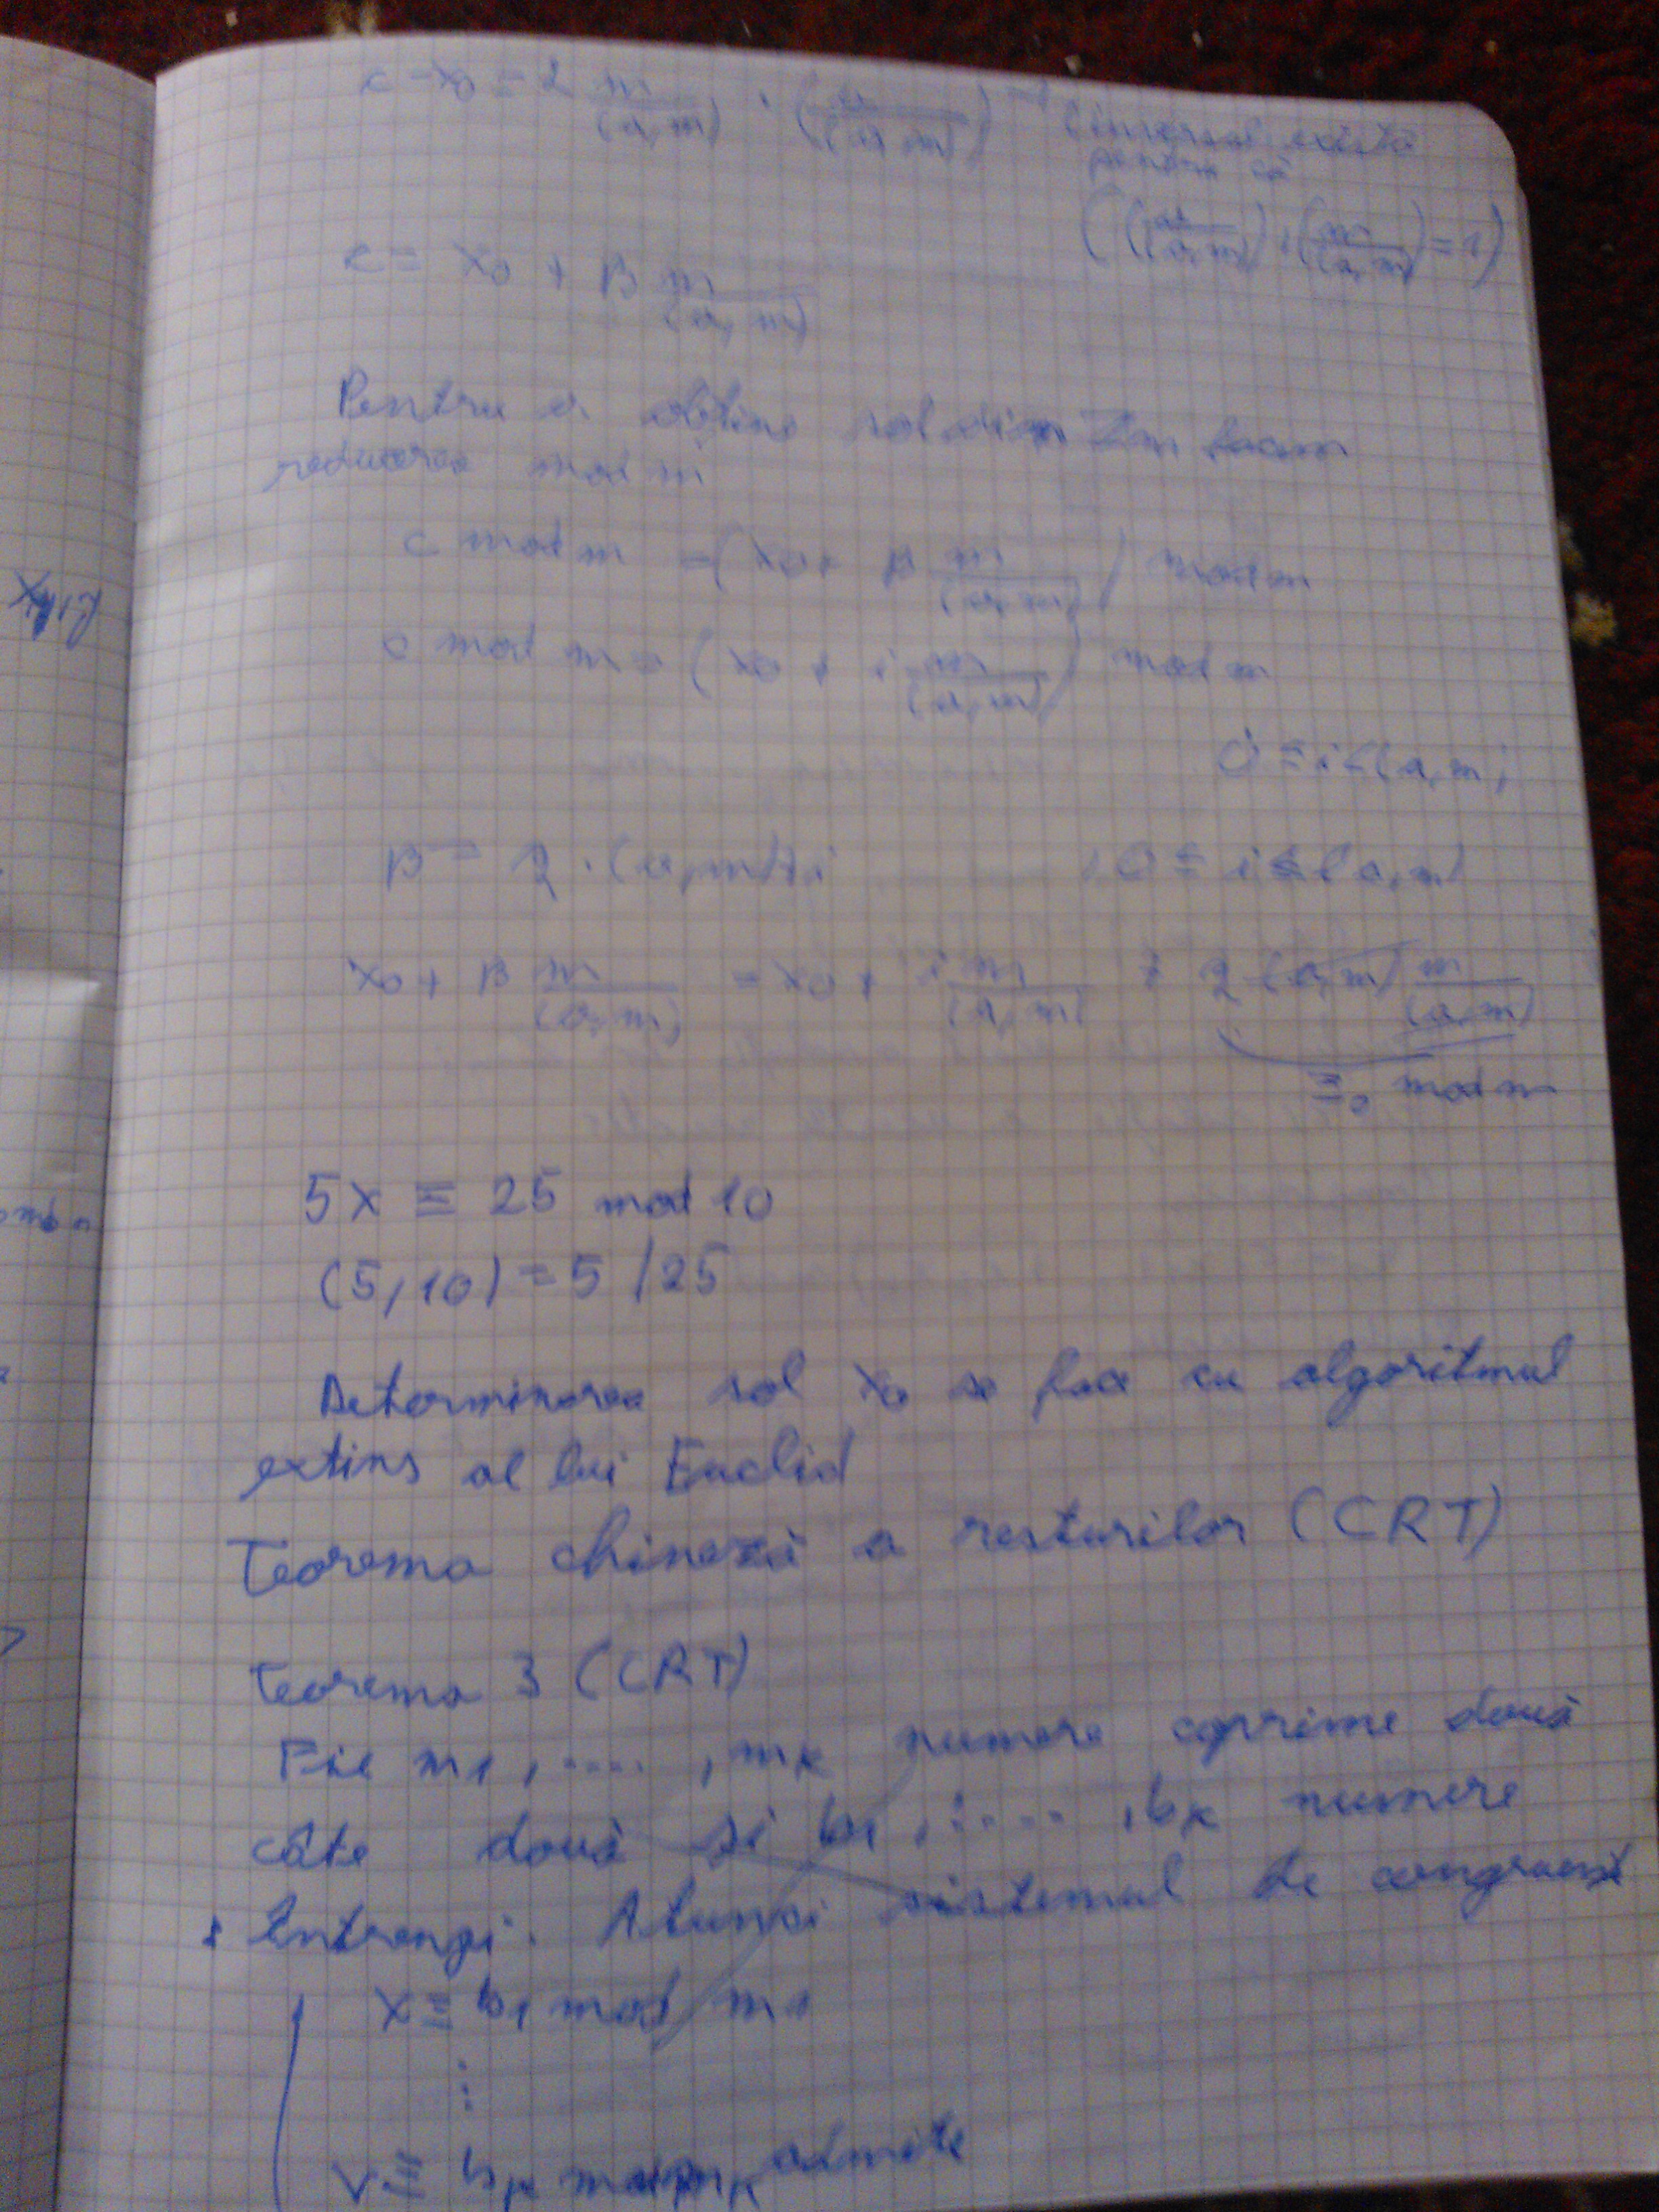 c - x0 = 2 m/(a,m) · (a/(a,m))^-1 (inversul există
pentru că
((a/(a,m)), (m/(a,m)) = 1)
c = x0 + β m/(a,m)
Pentru a obține sol din Zm facem
reducerea mod m
c mod m = (x0 + β m/(a,m)) mod m
c mod m = (x0 + i m/(a,m)) mod m
0 ≤ i < (a,m)
β = q · (a,m) + i , 0 ≤ i < (a,m)
x0 + β m/(a,m) = x0 + i m/(a,m) + q (a,m) m/(a,m)
≡0 mod m
5x ≡ 25 mod 10
(5,10) = 5 | 25
Determinarea sol x0 se face cu algoritmul
extins al lui Euclid
Teorema chineză a resturilor (CRT)
Teorema 3 (CRT)
Fie m1, ...., mk numere coprime două
câte două și b1, ...., bk numere
întregi. Atunci sistemul de congruențe
x ≡ b1 mod m1
⋮
x ≡ bk mod mk admite